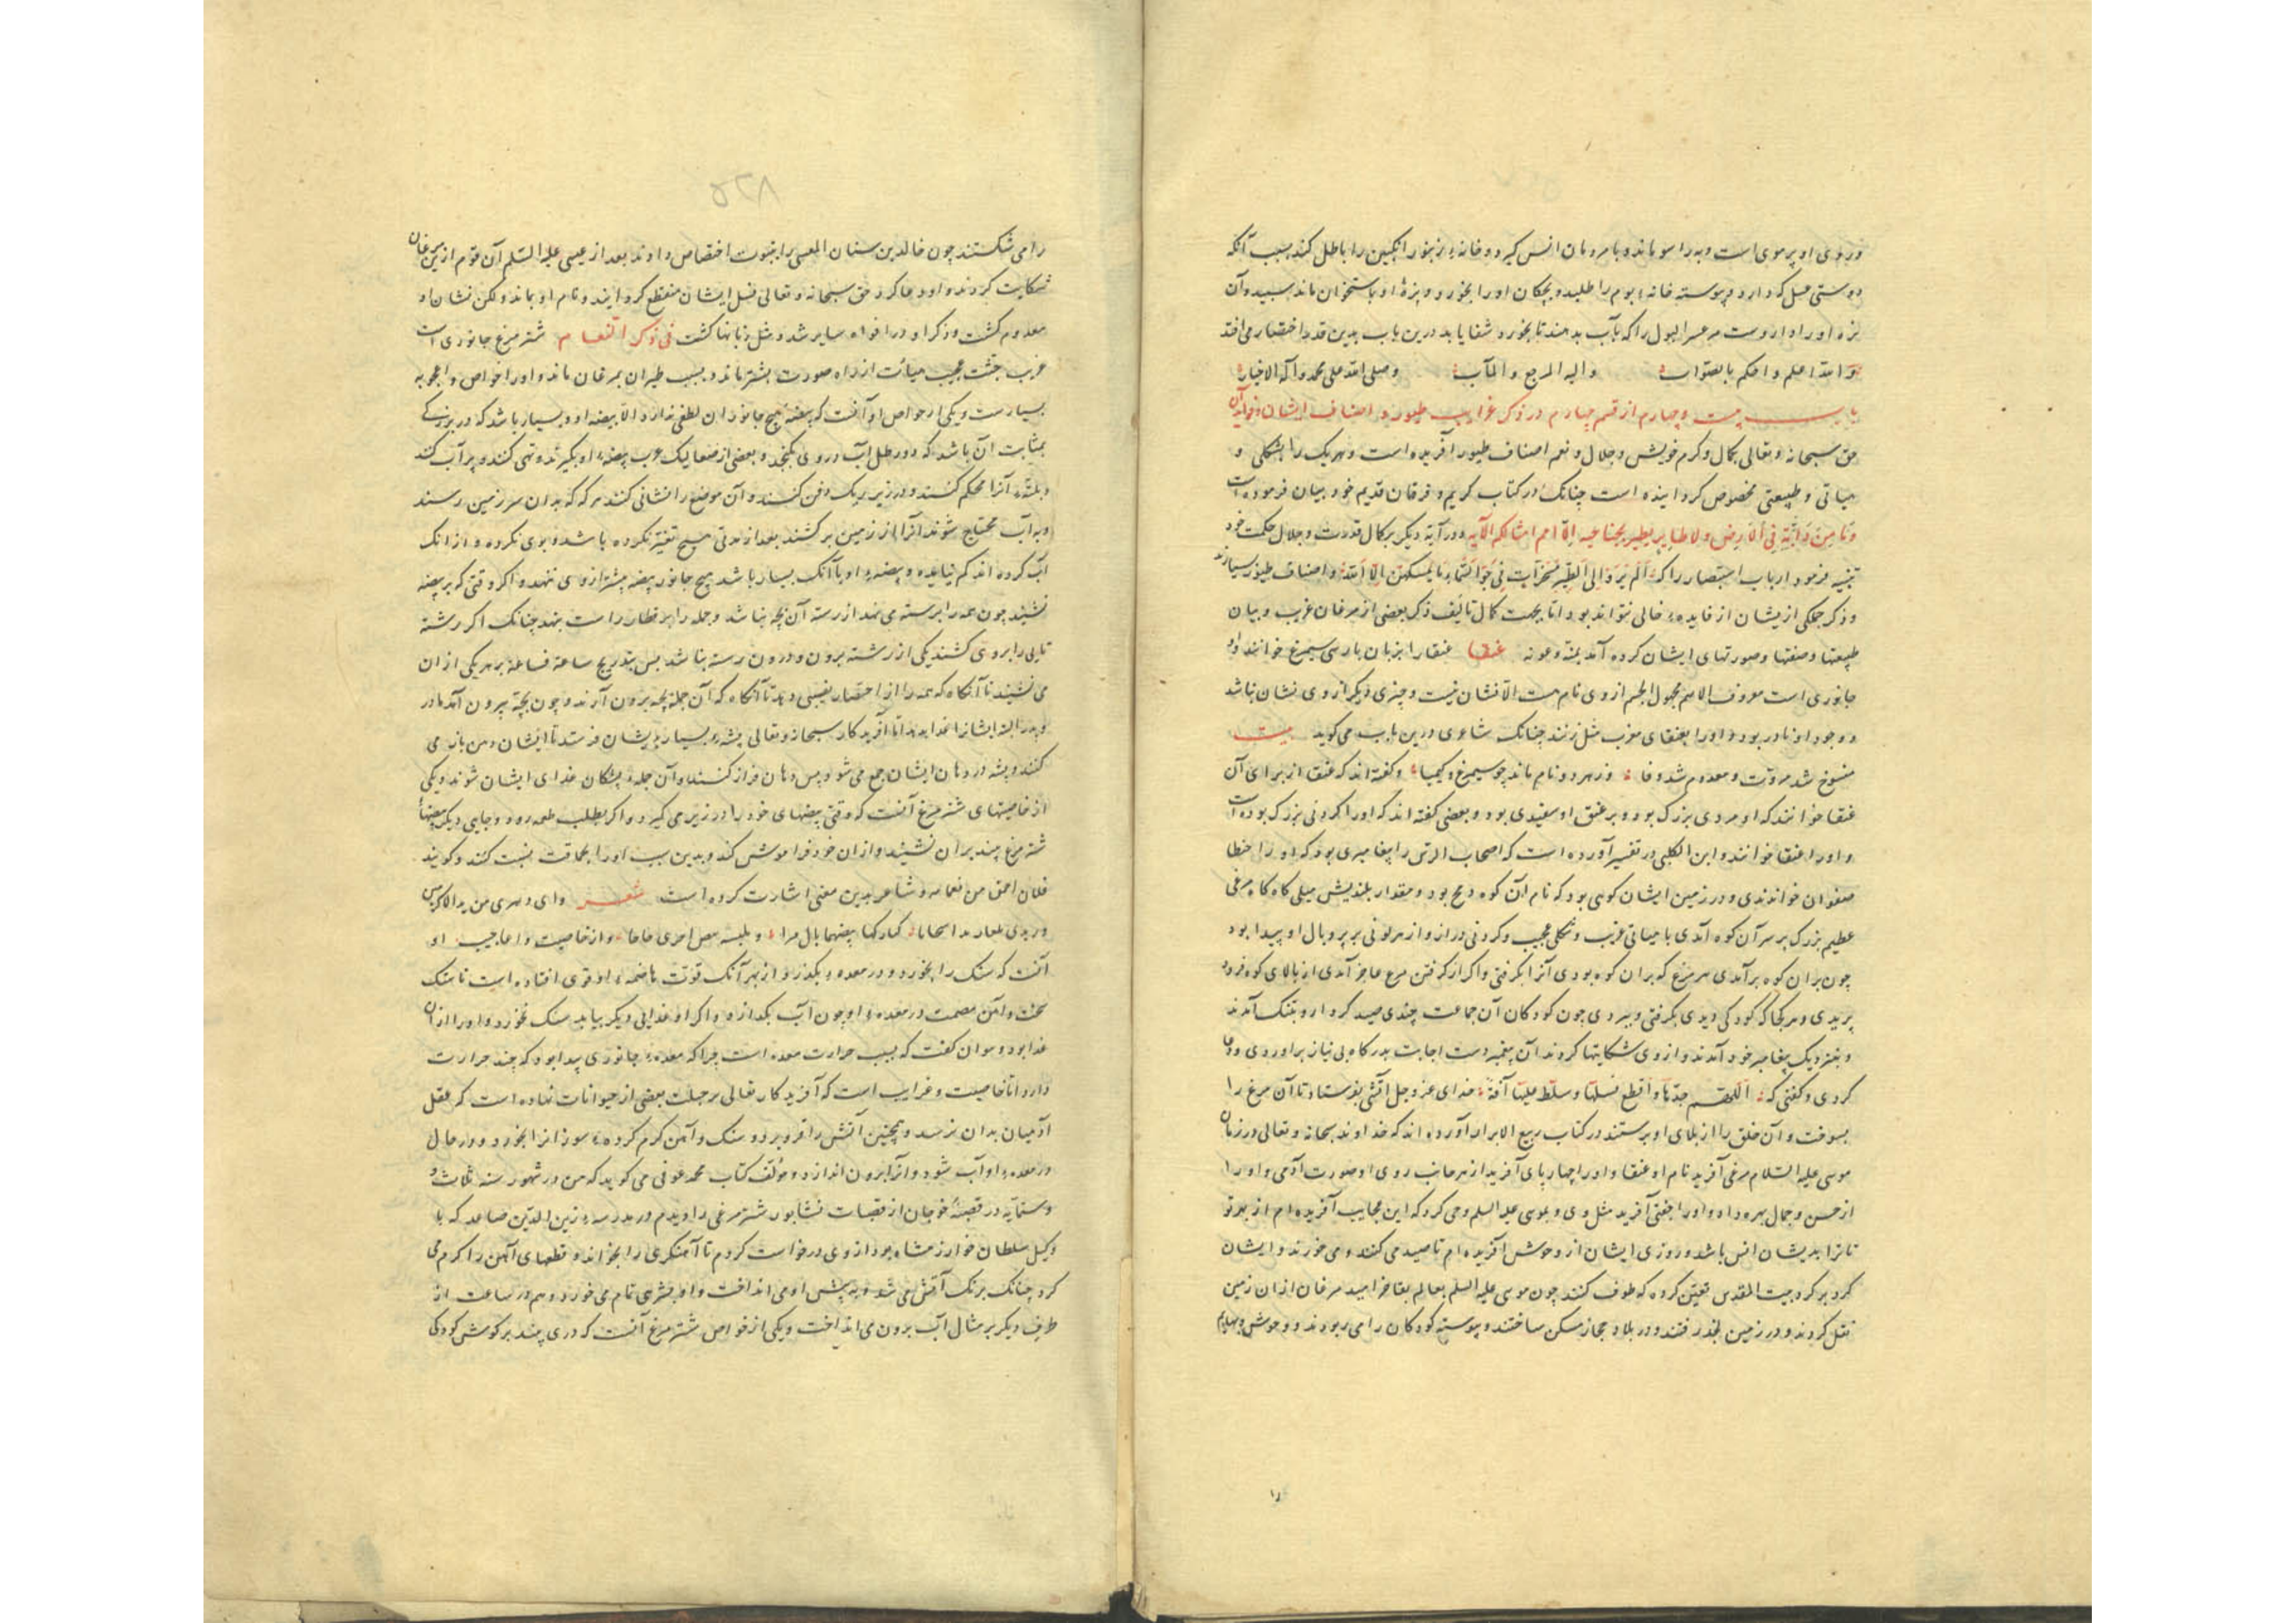 در روی او پر موی است و به راسو ماند و با مردمان انس گیرد و خانهٔ زنبور انگبین را باطل کند بسبب آنکه
دوستی عسل که دارد و پیوسته خانهٔ بوم را طلبد و بچکان او را بخورد و بزهٔ او باستخوان ماند سپید و آن
بزه او را داروست مر عسر البول را که بآب بدهند تا بخورد شفا یابد درین باب بدین قدر اختصار می افتد
و الله اعلم و احکم بالصواب و الیه المرجع و المآب و صلی الله علی محمد و آله الاخیار
باب بیست و چهارم از قسم چهارم در ذکر غرایب طیور و اصناف ایشان و فواید آن
حق سبحانه و تعالی بکمال و کرم خویش و جلال و نعم اصناف طیور آفریده است و هر یک را بشکلی و
هیاتی و طبیعتی مخصوص گردانیده است چنانک در کتاب کریم و فرقان قدیم خود بیان فرموده است
وَمَا مِن دَابَّةٍ فِی الْأَرْضِ وَلَا طَائِرٍ یَطِیرُ بِجَنَاحَیْهِ إِلَّا أُمَمٌ أَمْثَالُکُم الآیه و در آیة دیگر بر کمال قدرت و جلال حکمت خود
تنبیه فرمود ارباب استبصار را که أَلَمْ یَرَوْا إِلَی الطَّیْرِ مُسَخَّرَاتٍ فِی جَوِّ السَّمَاءِ مَا یُمْسِکُهُنَّ إِلَّا اللَّهُ و اصناف طیور بسیارند
و ذکر جملگی ازیشان از فایدهٔ خالی نتواند بود اما بجهت کمال تالیف ذکر بعضی از مرغان غریب و بیان
طبیعتها و صنعتها و صورتهای ایشان کرده آید بمنه و عونه عنقا عنقا را بزبان پارسی سیمرغ خوانند و او
جانوری است معروف الاسم مجهول الجسم از وی نام هست الا نشان نیست و چیزی دیگر از وی نشان نباشد
و وجود او نادر بود و او را بعنقای مغرب مثل زنند چنانک شاعری درین باب می گوید بیت
منسوخ شد مروت و معدوم شد وفا وز هر دو نام ماند چو سیمرغ و کیمیا و گفته اند که عنقا از برای آن
عنقا خوانند که او مردی بزرگ بود و بر عنق او سفیدی بود و بعضی گفته اند که او را گردنی بزرگ بوده است
و او را عنقا خوانند و ابن الکلبی در تفسیر آورده است که اصحاب الرس را پیغامبری بود که او را حنظله
صفوان خواندندی و در زمین ایشان کوهی بود که نام آن کوه دمح بود و مقدار بلندیش میلی گاه گاه مرغی
عظیم بزرگ بر سر آن کوه آمدی با هیاتی غریب و شکلی عجیب و گردنی دراز و از هر لونی بر پر و بال او پیدا بود
چون بران کوه برآمدی هر مرغ که بران کوه بودی آنرا بگرفتی و اگر از گرفتن مرغ عاجز آمدی از بالای کوه فرود
پریدی و هر کجا که کودکی دیدی بگرفتی و ببردی چون کودکان آن جماعت چندی صید کرد او و بتنگ آمدند
و بنزدیک پیغامبر خود آمدند و از وی شکایتها کردند آن پیغمبر دست اجابت بدرگاه بی نیاز برآوردی و دعا
کردی و گفتی که اللهم خذها و اقطع نسلها و سلط علیها آفة خدای عز و جل آتشی بفرستاد تا آن مرغ را
بسوخت و آن خلق را از بلای او برستند در کتاب ربیع الابرار آورده اند که خداوند سبحانه و تعالی در زمان
موسی علیه السلام مرغی آفرید نام او عنقا و او را چهار پای آفرید از هر جانب روی او صورت آدمی و او را
از حسن و جمال بهره داد و او را جفتی آفرید مثل وی و بموسی علیه السلم وحی کرد که این عجایب آفریده ام از بهر تو
تا ترا بدیشان انس باشد و روزی ایشان از وحوش آفریده ام تا صید می کنند و می خورند و ایشان
گرد بر گرد بیت المقدس تعین کرده که طوف کنند چون موسی علیه السلم بعالم بقا خرامید مرغان ازان زمین
نقل کردند و در زمین نجد رفتند و در بلاد حجاز مسکن ساختند و پیوسته کودکان را می ربودند و وحوش و بهایم
را می شکستند چون خالد بن سنان العبسی را بنبوت اختصاص دادند بعد از عیسی علیه السلم آن قوم ازین مرغان
شکایت کردند و او دعا کرد حق سبحانه و تعالی نسل ایشان منقطع گردانید و نام او بماند و لکن نشان او
معدوم گشت و ذکر او در افواه سایر شد و مثل زبانها گشت فی ذکر النعام شتر مرغ جانوری است
غریب جثت عجیب هیأت از راه صورت بشتر ماند و بسبب طیران بمرغان ماند و او را خواص و اعجوبه
بسیارست و یکی از خواص او آنست که بیضهٔ هیچ جانور ان لطفی ندارد الا بیضهٔ او و بسیار باشد که در بزرگی
بمثابت آن باشد که دو رطل آب در وی بگنجد و بعضی از صعالیک عرب بیضهٔ او بگیرند و تهی کنند و پر آب کنند
و آنرا محکم کنند و در زیر ریگ دفن کنند و آن موضع را نشانی کنند هر گه که بدان سرزمین رسند
و به آب محتاج شوند آنرا از زمین برکشند بعد از مدتی هیچ تغییر نکرده باشد و بوی نکرده و از آنک
آب کرده اند کم نیاید و بیضهٔ او با آنک بسیار باشد هیچ جانور بیضه بیشتر از وی ننهد و اگر وقتی که بر بیضه
نشیند چون همه را برسته می نهد از رسته آن بچه نباشد و جمله را بر قطار راست بنهد چنانک اگر رشته
تابی را بروی کشند یکی از رشته برون و درون رسته نباشد پس بتدریج ساعة فساعة بر هر یکی ازان
می نشیند تا آنگاه که همه را از احتضار نصیبی دهد تا آنگاه که آن جمله بچه برون آرند و چون بچه بیرون آمد مادر
و پدر البته ایشانرا غذا بدهد اما آفریدگار سبحانه و تعالی پشهٔ بسیار بایشان فرستد تا ایشان دهن باز می
کنند و پشه در دهان ایشان جمع می شود پس دهان فراز کنند و آن جمله پشگان غذای ایشان شوند و یکی
از خاصیتهای شتر مرغ آنست که وقتی بیضهای خود را در زیر می گیرد و اگر بطلب طعمه رود و جایی دیگر بیضهاء
شتر مرغ بیند بران نشیند و ازان خود فراموش کند و بدین سبب او را بحماقت نسبت کنند و گویند
فلان احمق من نعامه و شاعر بدین معنی اشارت کرده است شعر
کتارکة بیضها بالعراء و ملبسة بیض اخری جناحا و از خاصیت و اعاجیب او
آنست که سنگ را بخورد و در معدهٔ بگذرد از بهر آنک قوت هاضمهٔ او قوی افتاده است تا سنگ
سخت و آهن مصمت در معدهٔ او چون آب بگدازد و اگر او غذایی دیگر بیابد سنگ نخورد و او را ازان
غذا بود و نتوان گفت که بسبب حرارت معده است چرا که معدهٔ جانوری پیدا بود که چند حرارت
دارد اما خاصیت و غرایب است که آفریدگار تعالی در جبلت بعضی از حیوانات نهاده است که عقل
آدمیان بدان نرسد و همچنین آتش را فرو برد و سنگ و آهن گرم کردهٔ سوزانرا بخورد و در حال
در معدهٔ او آب شود و آنرا برون اندازد و مؤلف کتاب محمد عوفی می گوید که من در شهور سنه ثلاث و
وستمایه در قصبهٔ خوجان از قصبات نشابور شتر مرغی را دیدم در مدرسهٔ زین الدین صاعد که با
وکیل سلطان خوارزمشاه بود از وی درخواست کردم تا آهنگری را بخواند و قطعهای آهن را گرم می
کرد چنانک برنگ آتش می شد و به پیش او می انداخت و او بشرهی تمام می خورد و هم در ساعت از
طرف دیگر بر مثال آب برون می انداخت و یکی از خواص شتر مرغ آنست که دری بیند بر گوش کودکی